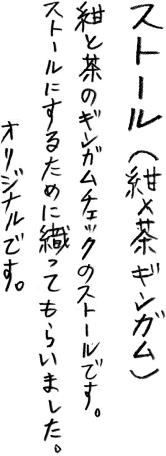 ストール(紺×茶ギンガム)
紺と茶のギンガムチェックのストールです。
ストールにするために織ってもらいました。
オリジナルです。